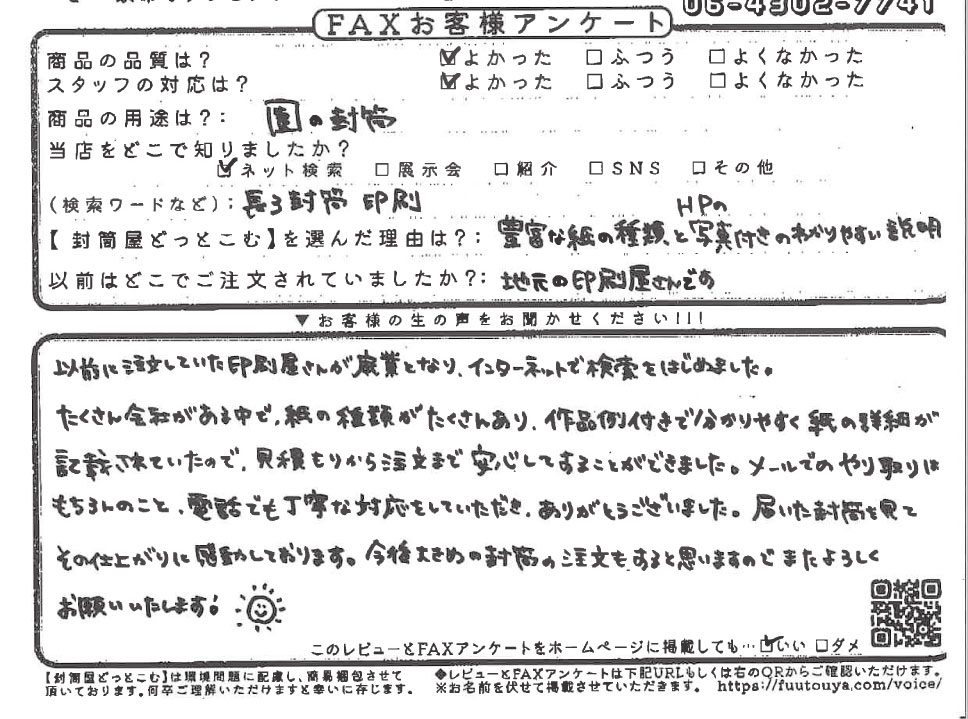 06-4302-7741
FAXお客様アンケート
商品の品質は? ☑よかった □ふつう □よくなかった
スタッフの対応は? ☑よかった □ふつう □よくなかった
商品の用途は?: 園の封筒
当店をどこで知りましたか?
☑ネット検索 □展示会 □紹介 □SNS □その他
(検索ワードなど): 長3封筒 印刷
HPの
【封筒屋どっとこむ】を選んだ理由は?: 豊富な紙の種類、と写真付きのわかりやすい説明
以前はどこでご注文されていましたか?: 地元の印刷屋さんです
▼お客様の生の声をお聞かせください!!!
以前に注文していた印刷屋さんが廃業となり、インターネットで検索をはじめました。
たくさん会社がある中で、紙の種類がたくさんあり、作品例付きで分かりやすく紙の詳細が
記載されていたので、見積もりから注文まで安心してすることができました。メールでのやり取りは
もちろんのこと、電話でも丁寧な対応をしていただき、ありがとうございました。届いた封筒を見て
その仕上がりに感動しております。今後大きめの封筒の注文もすると思いますのでまたよろしく
お願いいたします!
このレビューとFAXアンケートをホームページに掲載しても…☑いい □ダメ
【封筒屋どっとこむ】は環境問題に配慮し、簡易梱包させて
頂いております。何卒ご理解いただけますと幸いに存じます。
◆レビューとFAXアンケートは下記URLもしくは右のQRからご確認いただけます。
※お名前を伏せて掲載させていただきます。 https://fuutouya.com/voice/